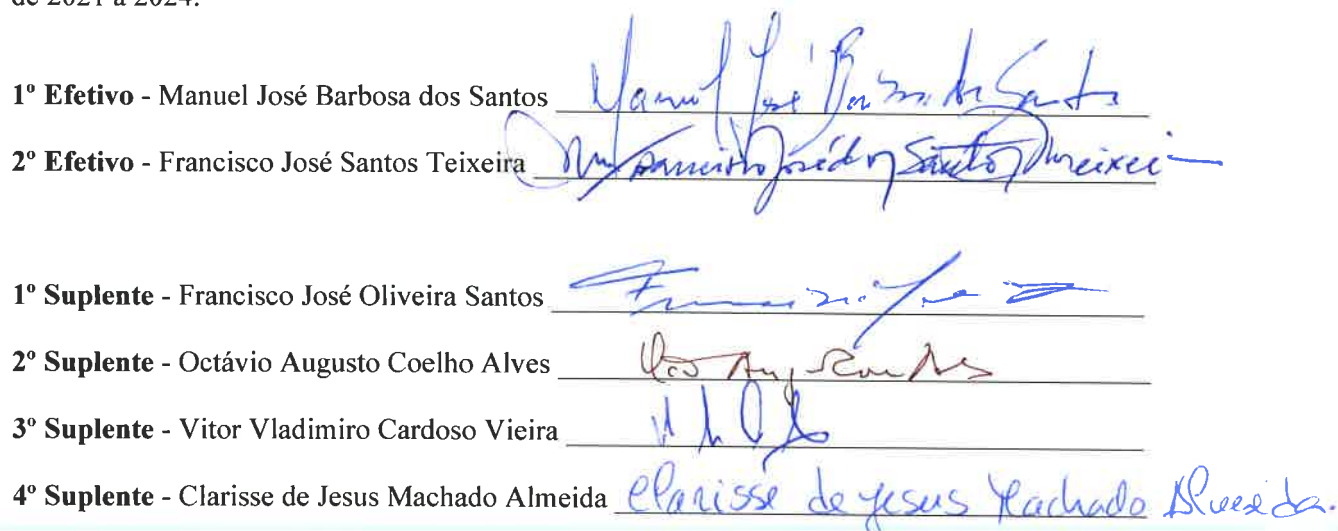 de 2021 a 2024.
1º Efetivo - Manuel José Barbosa dos Santos Manuel José
2º Efetivo - Francisco José Santos Teixeira Francisco José dos Santos Teixeira
1º Suplente - Francisco José Oliveira Santos
2º Suplente - Octávio Augusto Coelho Alves
3º Suplente - Vitor Vladimiro Cardoso Vieira
4º Suplente - Clarisse de Jesus Machado Almeida Clarisse de Jesus Machado Almeida.